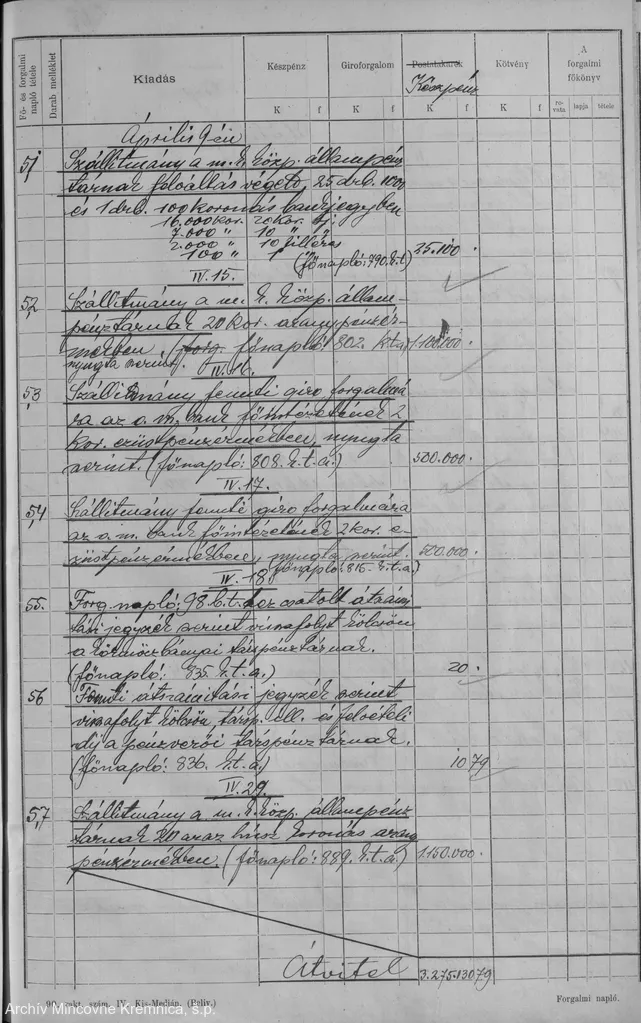 Fő- és forgalmi napló tétele
Darab melléklet
Kiadás
Készpénz
Giroforgalom
Postatakarék
Készpénz
Kötvény
A forgalmi főkönyv
K f K f K f K f rovata lapja tétele
Április 9én
51 Szállítmány a m. k. közp. állampénz
tárnak felváltás végett, 25 drb. 1000
és 1 drb. 100 koronás bankjegyben
16.000 kor. 20 kor.
7.000 " 10 " "
2.000 " 10 filléres
100 " 1 "
(főnapló: 790. k.t.) 25.100
IV. 15.
52 Szállítmány a m. k. közp. állam-
pénztárnak 20 kor. arany pénzér-
mékben. főnapló: 802. k.t.a. 1.100.000
nyugta szerint.
IV. 16.
53 Szállítmány fennti giro forgalmá
ra az o. m. bank főintézetének 2
kor. ezüstpénzérmékben, nyugta
szerint. (főnapló: 808. k.t.a.) 500.000
IV. 17.
54 Szállítmány fennti giro forgalmára
az o. m. bank főintézetének 2 kor. e-
züstpénzérmékben, nyugta szerint. 500.000
(főnapló: 816. k.t.a.)
IV. 18.
55. Forg. napló: 98 b.t. hez csatolt átszámí
tási jegyzék szerint visszafolyt kölcsön
a körmöczbányai társpénztárnak.
(főnapló: 835. k.t.a.) 20.
56 Fennti átszámítási jegyzék szerint
visszafolyt kölcsön, társp. ill. és felvételi
díj a pénzverői társpénztárnak.
(főnapló: 836. k.t.a.) 10 79
IV. 29.
57 Szállítmány a m. k. közp. állampénz
tárnak 20 azaz húsz koronás arany
pénzérmékben. (főnapló: 889. k.t.a.) 1.150.000.
Átvitel 3.275.130 79
rakt. szám. IV. Kis-Medián. (Peliv.)
Forgalmi napló.
Archív Mincovne Kremnica, š.p.